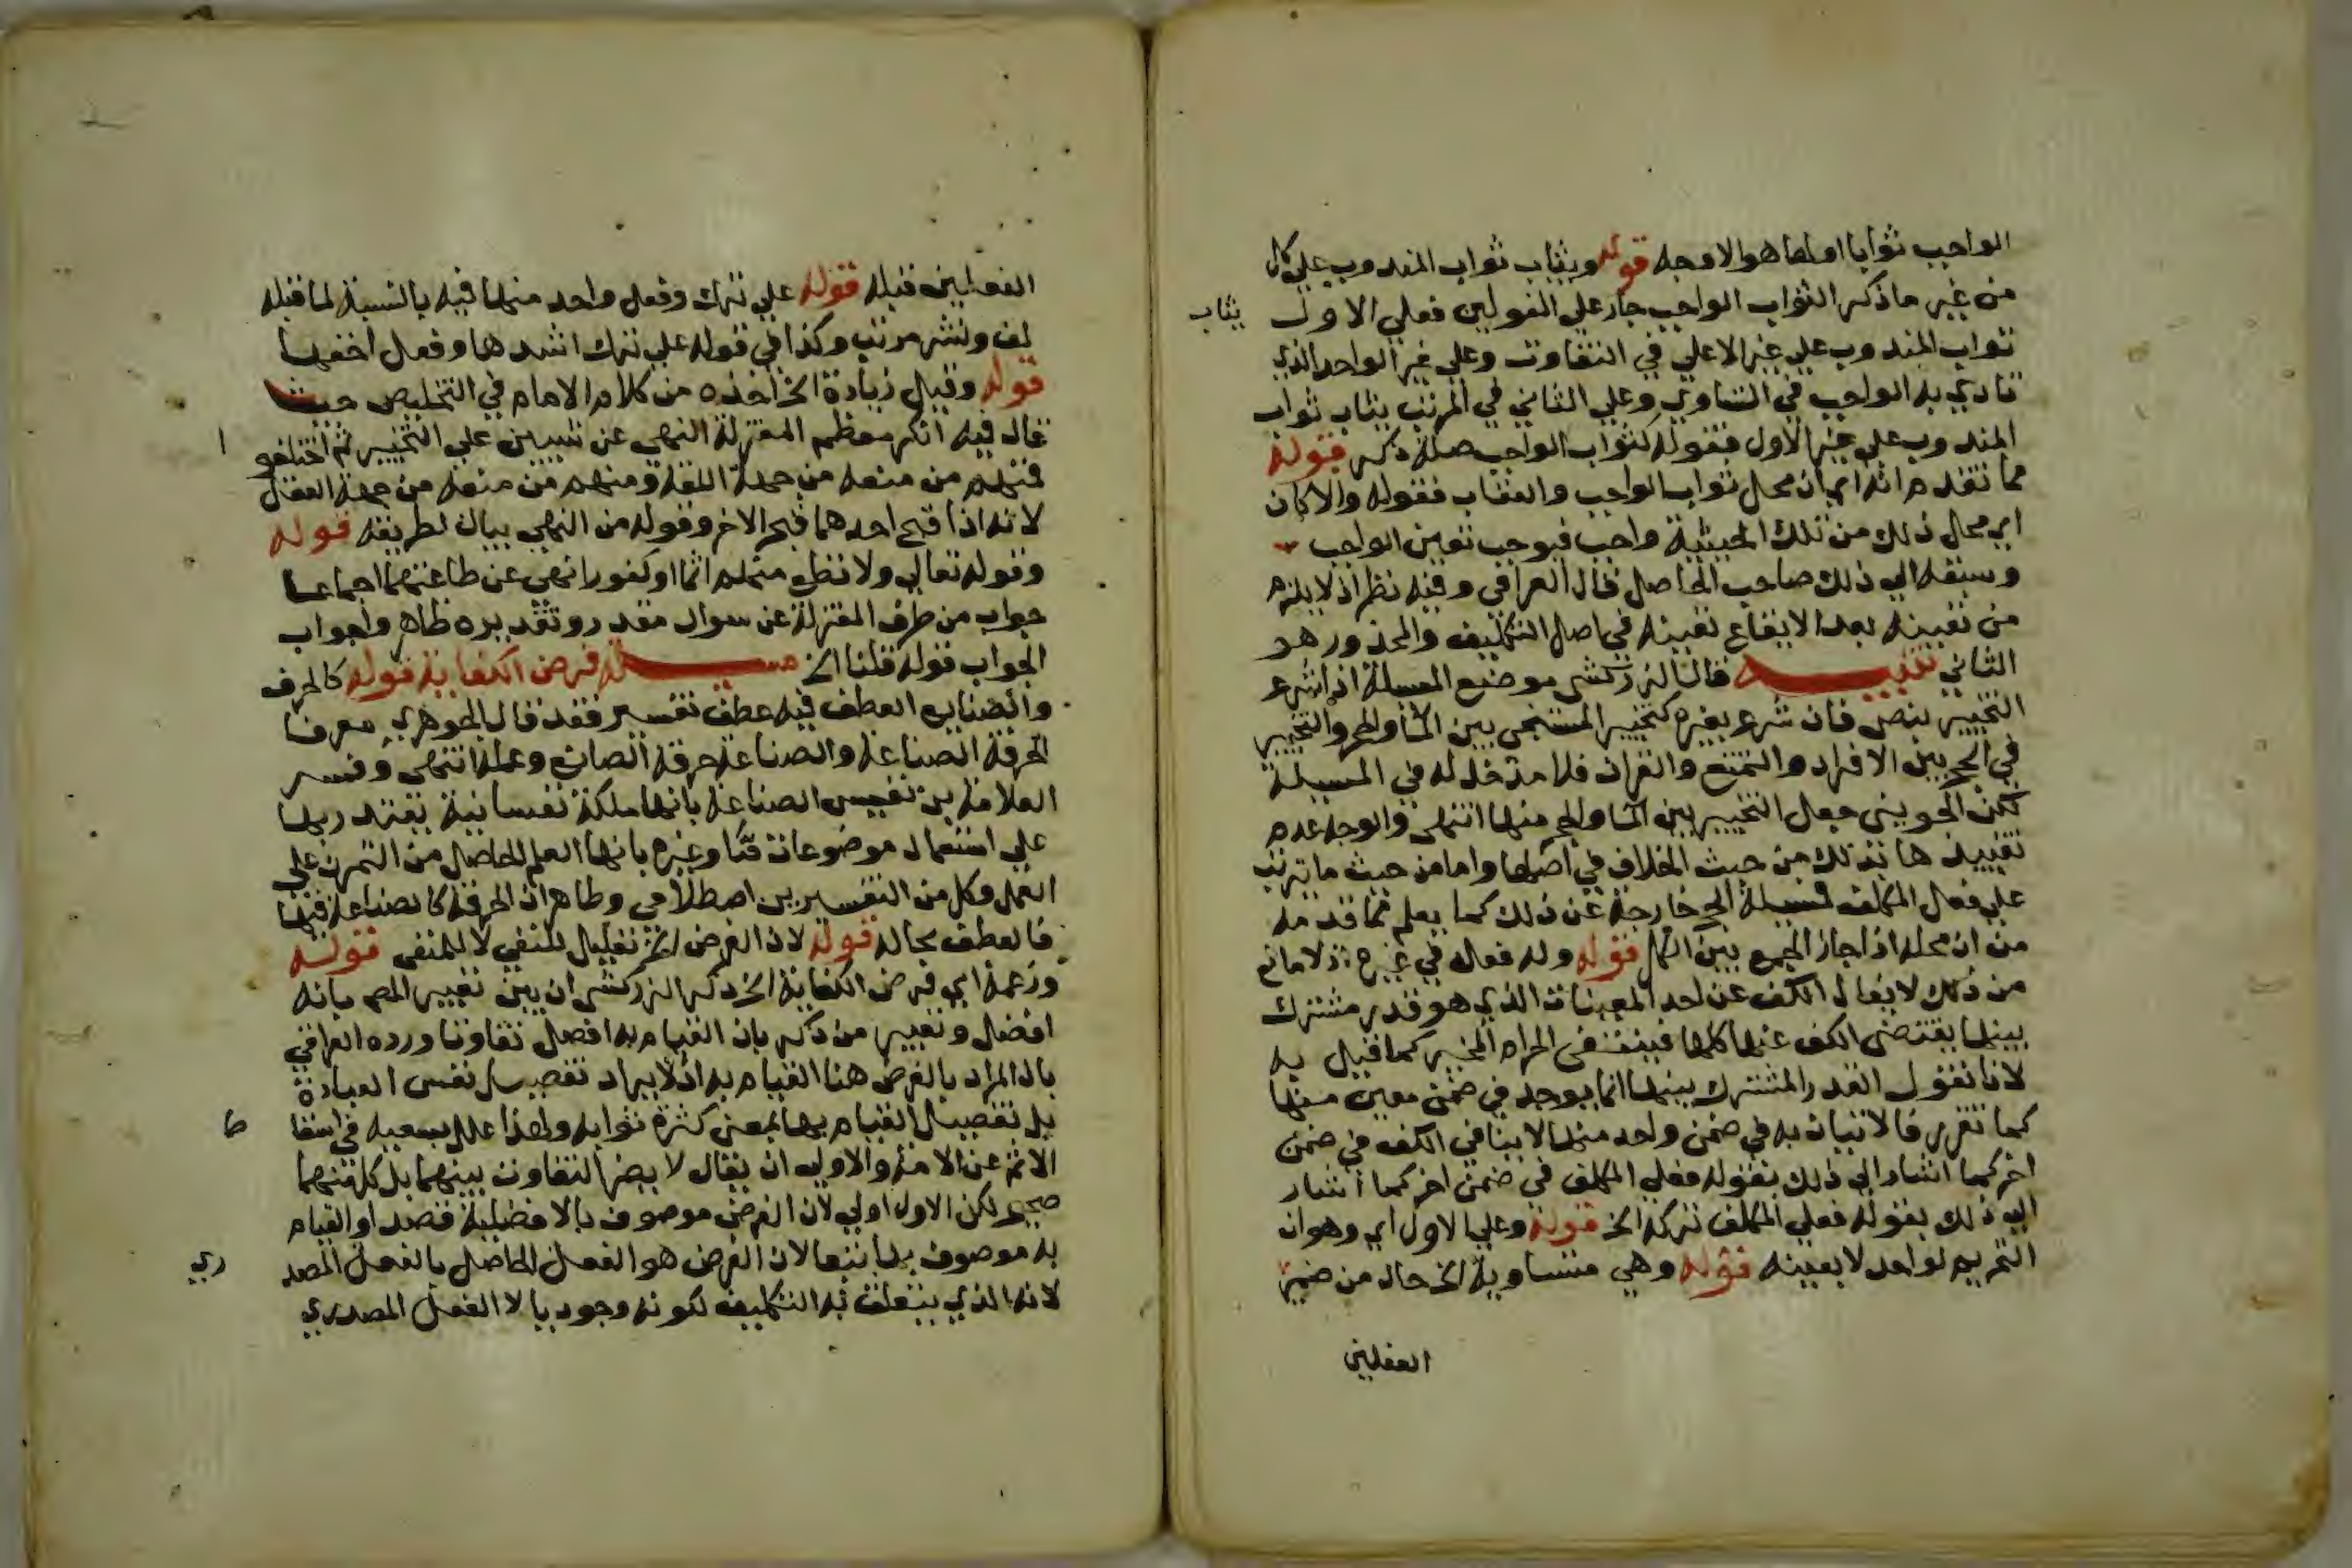 الواجب ثوابا اولها هو الاوجه قوله ويثاب ثواب المندوب على كل
من غير ما ذكر الثواب الواجب جار على القولين فعلى الاول يثاب
ثواب المندوب على غير الاعلى في التفاوت وعلى غير الواحد الذي
تادي به الواجب في التساوي وعلى الثاني في المرتب يثاب ثواب
المندوب على غير الاول فقوله لثواب الواجب صلة ذكر قوله
مما تقدم انه اي ان محل ثواب الواجب والعقاب فقوله والا كان
اي محل ذلك من تلك الحيثية واجب فيوجب تعين الواجب
وسبقه الى ذلك صاحب الحاصل قال العراقي وفيه نظر اذ لا يلزم
من تعيينه بعد الايقاع تعيينه في اصل التكليف والمحذور هو
الثاني تنبيه قال الزركشي موضع المسيلة اذا شرع
التخيير بنص فان شرع بغيره كتخيير المستنجي بين الماء والحجر والتخيير
في الحج بين الافراد والتمتع والقران فلا مدخل له في المسيلة
لكن الجويني جعل التخيير بين الماء والحجر منها انتهى والوجه عدم
تقييدها بذلك من حيث الخلاف في اصلها واما من حيث ما يترتب
على فعل المكلف فمسيلة الحج خارجة عن ذلك كما يعلم مما قدمه
من ان محله اذا جاز الجمع بين الكل قوله وله فعله في غيره اذ لا مانع
من ذلك لا يقال الكف عن احد المعينات الذي هو قدر مشترك
بينها يقتضي الكف عنها كلها فينتفي الحرام المخير كما قيل به
لانا نقول القدر المشترك بينها انما يوجد في ضمن معين منها
كما تقرر فالاتيان به في ضمن واحد منها لا ينافي الكف في ضمن
اخر كما اشار الى ذلك بقوله فعلى المكلف في ضمن اخر كما اشار
الى ذلك بقوله فعلى المكلف تركه الخ قوله وعلى الاول اي وهو ان
التحريم لواحد لا بعينه قوله وهي متساوية الخ حال من ضمير
الفعلين
الفعلين قبله قوله على ترك وفعل واحد منها فيه بالنسبة لما قبله
لف ونشر مرتب وكذا في قوله على ترك اشدها وفعل اخفها
قوله وقيل زيادة الخ اخذه من كلام الامام في التلخيص حيث
قال فيه انكر معظم المعتزلة النهي عن شيين على التخيير ثم اختلفو ا
فمنهم من منعه من جهة اللغة ومنهم من منعه من جهة العقل
لانه اذا قبح احدهما قبح الاخر وقوله من النهي بيان لطريقه قوله
وقوله تعالى ولا تطع منهم اثما او كفورا نهي عن طاعتهما اجماعا
جواب من طرف المعتزلة عن سوال مقدر وتقديره ظاهر واجواب
الجواب قوله قلنا الخ مسيلة فرض الكفاية قوله كالحرف
والصنايع العطف فيه عطف تفسير فقد قال الجوهري معرفا
الحرفة الصناعة والصناعة حرفة الصانع وعمله انتهى وفسر
العلامة بن نفيس الصناعة بانها ملكة نفسانية يقتدر بها
على استعمال موضوعات ما وغيره بانها العلم الحاصل من التمرن على
العمل وكل من التفسيرين اصطلاحي وظاهر ان الحرفة كالصناعة فيهما
فالعطف بحاله قوله لان الغرض الخ تعليل للنفي لا للمنفي قوله
وزعمه اي فرض الكفاية الخ ذكر الزركشي ان بين تعبير المص بانه
افضل وتعبير من ذكر بان القيام به افضل تفاوتا ورده العراقي
بان المراد بالفرض هنا القيام به اذ لا يراد تفضيل نفس العبادة
بل تفضيل القيام بها بمعنى كثرة ثوابه ولهذا علل بسعيه في اسقا ط
الاثم عن الامة والاولى ان يقال لا يضر التفاوت بينهما بل كل منهما
صحيح لكن الاول اولى لان الفرض موصوف بالافضلية قصدا والقيام
به موصوف بها تبعا لان الفرض هو الفعل الحاصل بالفعل المصد ري
لانه الذي يتعلق به التكليف لكونه وجوديا لا الفعل المصدري